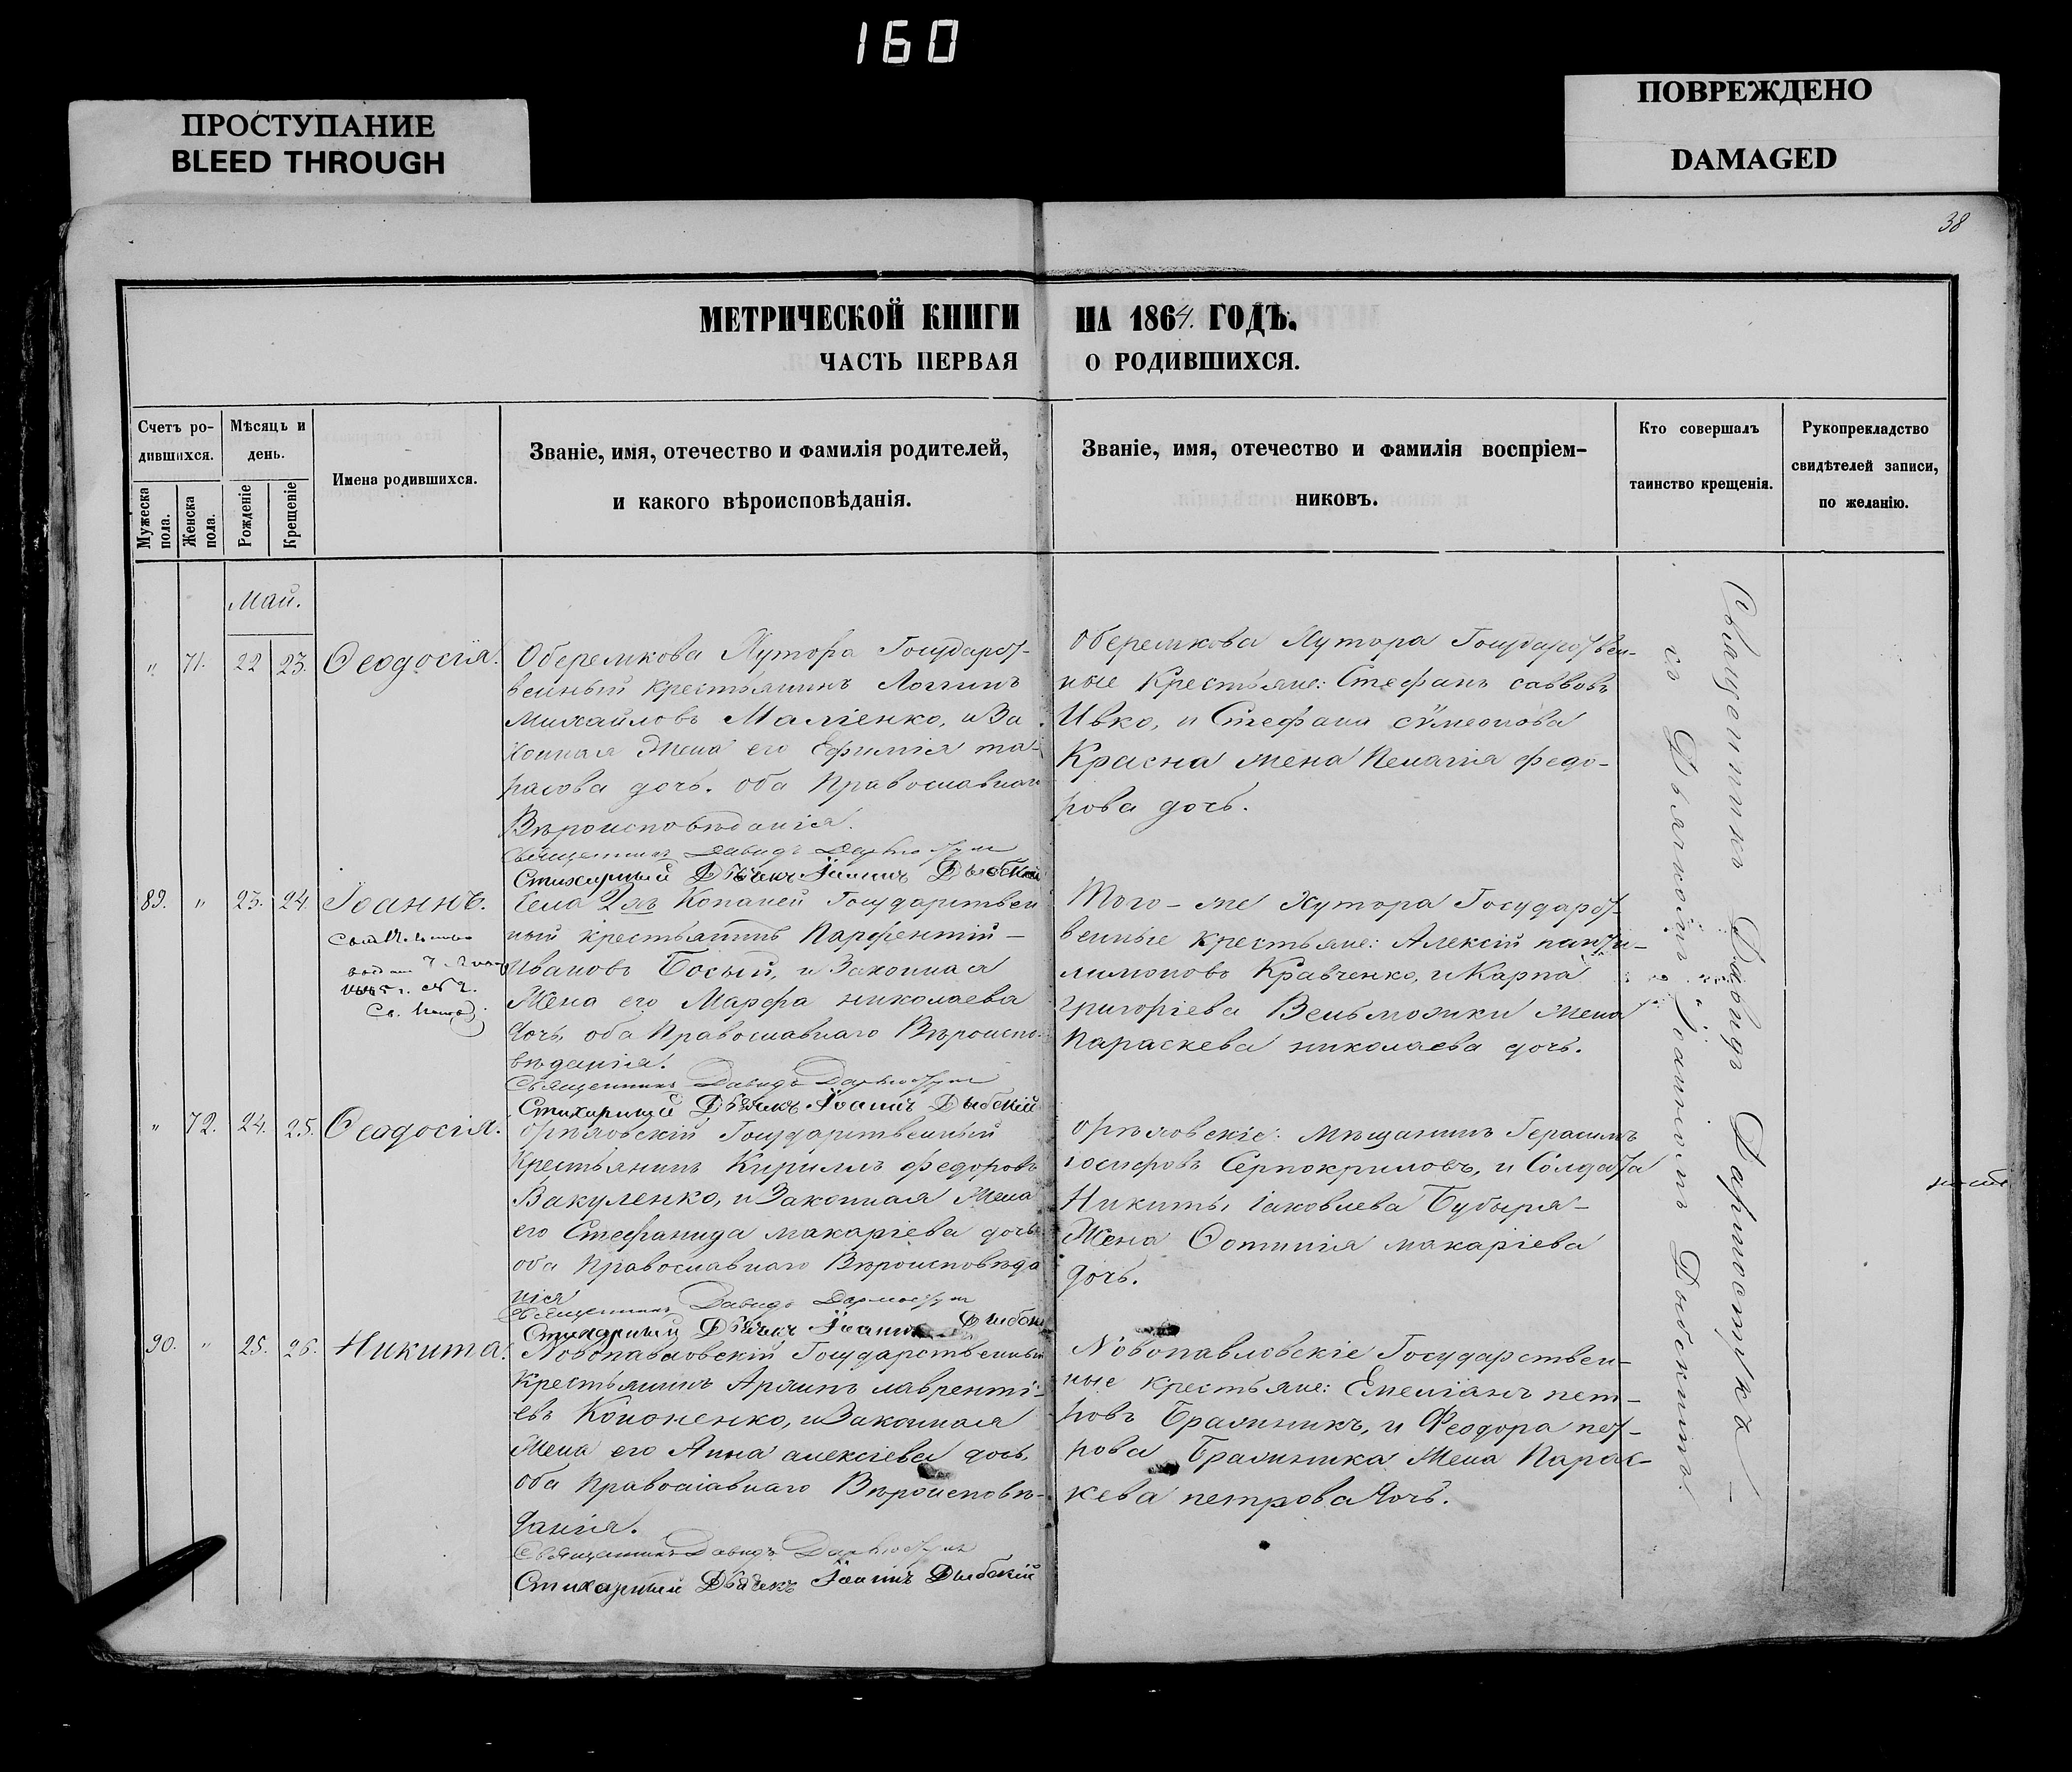 160
ПРОСТУПАНИЕ
BLEED THROUGH
ПОВРЕЖДЕНО
DAMAGED
38
МЕТРИЧЕСКОЙ КНИГИ НА 1864. ГОДЪ.
ЧАСТЬ ПЕРВАЯ О РОДИВШИХСЯ.
Счетъ ро-
дившихся.
Мужеска пола.
Женска пола.
Мѣсяцъ и
день.
Рожденіе
Крещеніе
Имена родившихся.
Званіе, имя, отечество и фамилія родителей,
и какого вѣроисповѣданія.
Званіе, имя, отечество и фамилія воспріем-
никовъ.
Кто совершалъ
таинство крещенія.
Рукопрекладство
свидѣтелей записи,
по желанію.
Май.
" 71. 22 23. Ѳеодосія.
Оберемкова Хутора Государст-
венный крестьянинъ Логгинъ
Михайловъ Маліенко, и За
конная Жена его Ефимія та-
расова дочь. оба Православнаго
Вѣроисповѣданія.
Священникъ Давидъ
Стихарный Дьячекъ Іоаннъ Дыбскій
Оберемкова Хутора Государствен-
ные Крестьяне: Стефанъ саввовъ
Ивко, и Стефана сѵмеонова
Красна жена Пелагія федо-
рова дочь.
89. " 23. 24. Іоаннъ.
Села Копаней Государствен
ный крестьянинъ Парфентій
Ивановъ Босый, и Законная
Жена его Марфа николаева
дочь, оба Православнаго Вѣроиспо-
вѣданія.
Священникъ Давидъ
Стихарный Дьячекъ Іоаннъ Дыбскій
Того-же Хутора Государст-
венные крестьяне: Алексій панти-
лимоновъ Кравченко, и Карпа
григоріева Вельможки жена
Параскева николаева дочь.
" 72. 24. 25. Ѳеодосія.
орѣховскій Государственный
Крестьянинъ Кириллъ федоровъ
Вакуленко, и Законная Жена
его Стефанида макаріева дочь
оба Православнаго Вѣроисповѣда
нія
Священникъ Давидъ
Стихарный Дьячекъ Іоаннъ Дыбскій
орѣховскіе: мѣщанинъ Герасимъ
іосифовъ Серпокриловъ, и Солдата
Никиты іаковлева Бубыря
Жена Фотинія макаріева
дочь.
90. " 25. 26. Никита.
Новопавловскій Государственный
Крестьянинъ лавренті-
евъ Кононенко, и Законная
Жена его Анна алексіева дочь,
оба Православнаго Вѣроисповѣ-
данія.
Священникъ Давидъ
Стихарный Дьячекъ Іоаннъ Дыбскій
Новопавловскіе Государствен-
ные крестьяне: Емеліанъ пет-
ровъ Бражникъ, и Феодора пет-
рова Бражника Жена Парас-
кева петрова дочь.
Священникъ Давидъ
съ Дьячкомъ Іоанномъ Дыбскимъ.